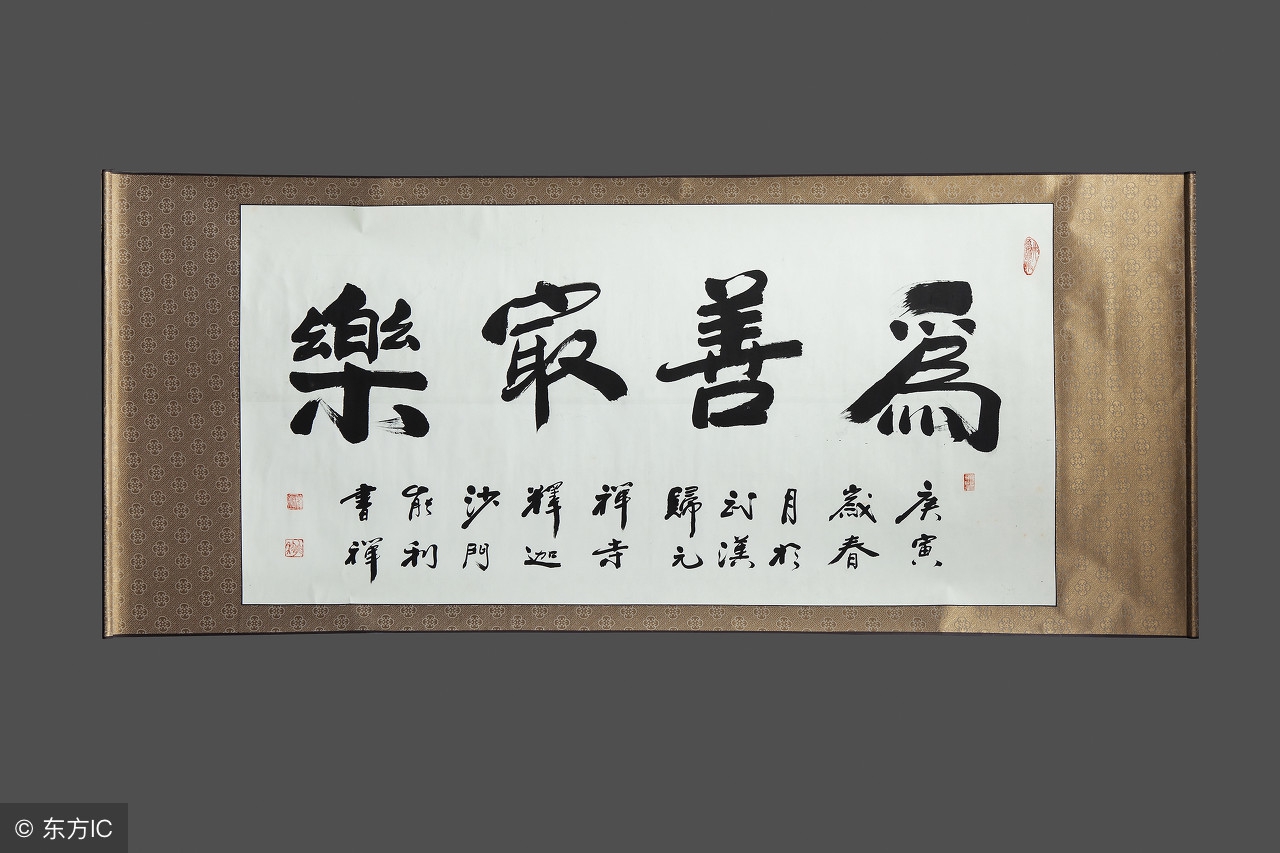 爲善最樂
庚寅
歲春
月於
武漢
歸元
禪寺
釋迦
沙門
能利
書禪
© 东方IC